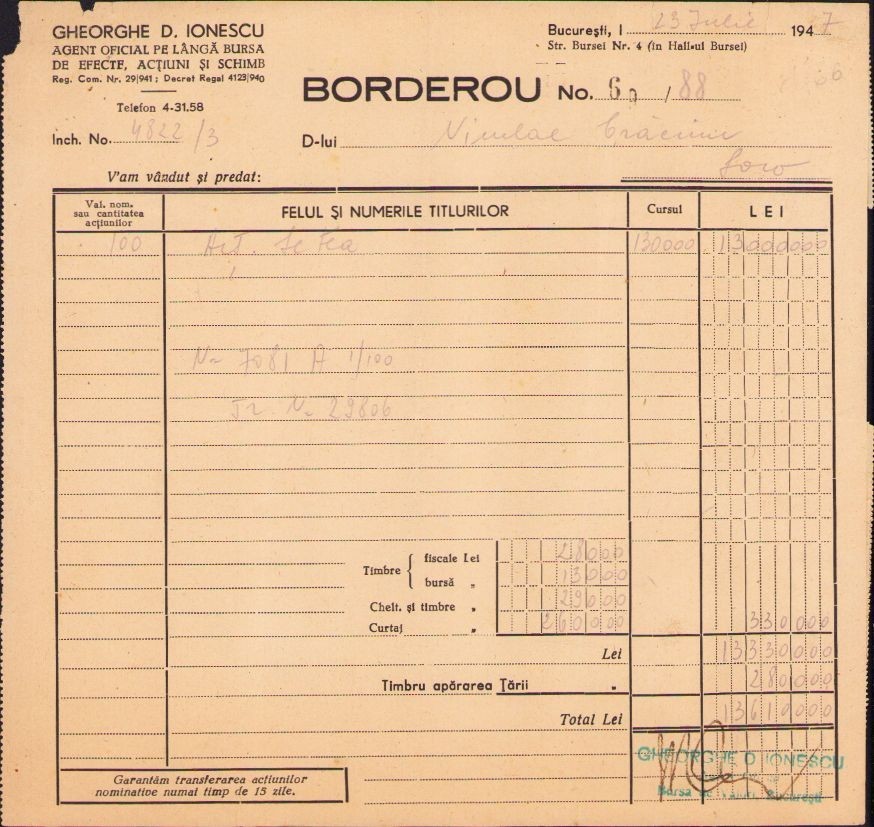 GHEORGHE D. IONESCU
AGENT OFICIAL PE LÂNGĂ BURSA
DE EFECTE, ACȚIUNI ȘI SCHIMB
Reg. Com. Nr. 29|941 ; Decret Regal 4123|940
Telefon 4-31.58
București, I 23 Iulie 1947
Str. Bursei Nr. 4 (în Hall-ul Bursei)
BORDEROU No. 60 / 88
Inch. No. 4822/3
D-lui Niculae Crăciun
Loco
V'am vândut și predat:
Val. nom. sau cantitatea acțiunilor
FELUL ȘI NUMERILE TITLURILOR
Cursul
LEI
100 Act. 130000 13000000
7081 A 1/100
29806
Timbre fiscale Lei 28000
bursă „ 13000
Chelt. și timbre „ 29000
Curtaj „ 260000 330000
Lei 13330000
Timbru apărarea Țării „ 280000
Total Lei 13610000
GHEORGHE D IONESCU
București
Garantăm transferarea acțiunilor
nominative numai timp de 15 zile.